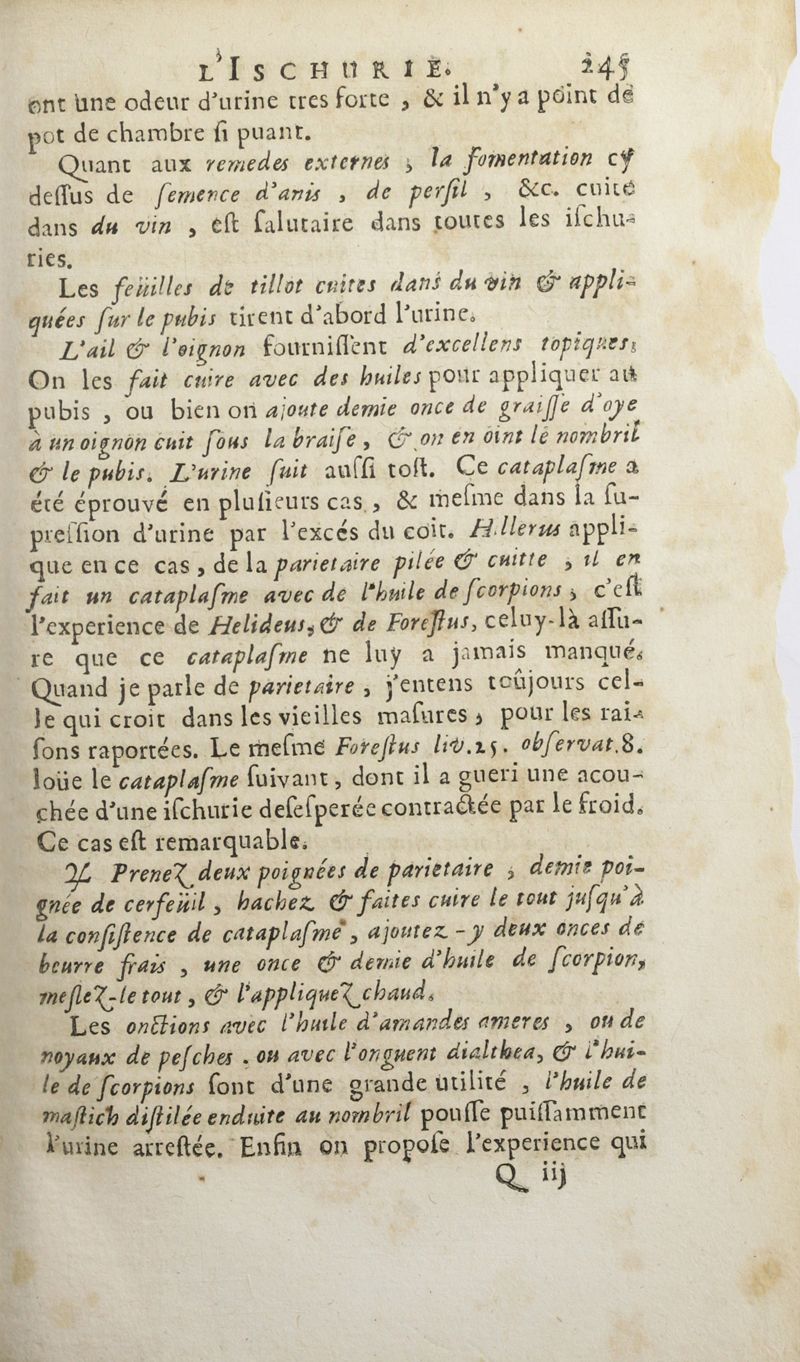 L'ISCHURIE. 245
ont une odeur d'urine tres forte, & il n'y a point de
pot de chambre ſi puant.
Quant aux remedes externes, la fomentation cy
deſſus de ſemence d'anis, de perſil, &c. cuite
dans du vin, eſt ſalutaire dans toutes les iſchu-
ries.
Les feüilles de tillot cuites dans du vin & appli-
quées ſur le pubis tirent d'abord l'urine.
L'ail & l'oignon fourniſſent d'excellens topiques;
On les fait cuire avec des huiles pour appliquer au
pubis, ou bien on ajoute demie once de graiſſe d'oye
à un oignon cuit ſous la braiſe, & on en oint le nombril
& le pubis. L'urine ſuit auſſi toſt. Ce cataplaſme a
été éprouvé en pluſieurs cas, & meſme dans la ſu-
preſſion d'urine par l'excés du coit. Hollerus appli-
que en ce cas, de la parietaire pilée & cuitte, il en
fait un cataplaſme avec de l'huile de ſcorpions, c'eſt
l'experience de Helideus, & de Foreſtus, celuy-là aſſu-
re que ce cataplaſme ne luy a jamais manqué.
Quand je parle de parietaire, j'entens toûjours cel-
le qui croit dans les vieilles maſures, pour les rai-
ſons raportées. Le meſme Foreſtus liv.25. obſervat.8.
loüe le cataplaſme ſuivant, dont il a gueri une acou-
chée d'une iſchurie deſeſperée contractée par le froid.
Ce cas eſt remarquable.
♃ Prenez deux poignées de parietaire, demie poi-
gnée de cerfeüil, hachez & faites cuire le tout juſqu'à
la conſiſtence de cataplaſme, ajoutez-y deux onces de
beurre frais, une once & demie d'huile de ſcorpion,
meſlez-le tout, & l'appliquez chaud.
Les onctions avec l'huile d'amandes ameres, ou de
noyaux de peſches. ou avec l'onguent dialthea, & l'hui-
le de ſcorpions ſont d'une grande utilité, l'huile de
maſtich diſtilée enduite au nombril pouſſe puiſſamment
l'urine arreſtée. Enfin on propoſe l'experience qui
Q iij